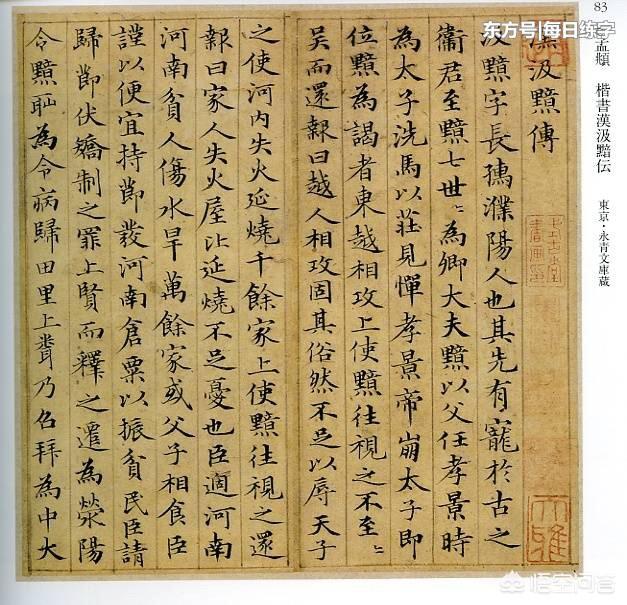 东方号|每日练字
83
孟頫 楷書漢汲黯伝 東京・永青文庫蔵
漢汲黯傳
汲黯字長孺濮陽人也其先有寵於古之
衛君至黯七世〻為卿大夫黯以父任孝景時
為太子洗馬以莊見憚孝景帝崩太子即
位黯為謁者東越相攻上使黯往視之不至〻
吳而還報曰越人相攻固其俗然不足以辱天子
之使河內失火延燒千餘家上使黯往視之還
報曰家人失火屋比延燒不足憂也臣適河南
河南貧人傷水旱萬餘家或父子相食臣
謹以便宜持節發河南倉粟以振貧民臣請
歸節伏矯制之罪上賢而釋之遷為滎陽
令黯恥為令病歸田里上聞乃召拜為中大
大雅
悟空问答